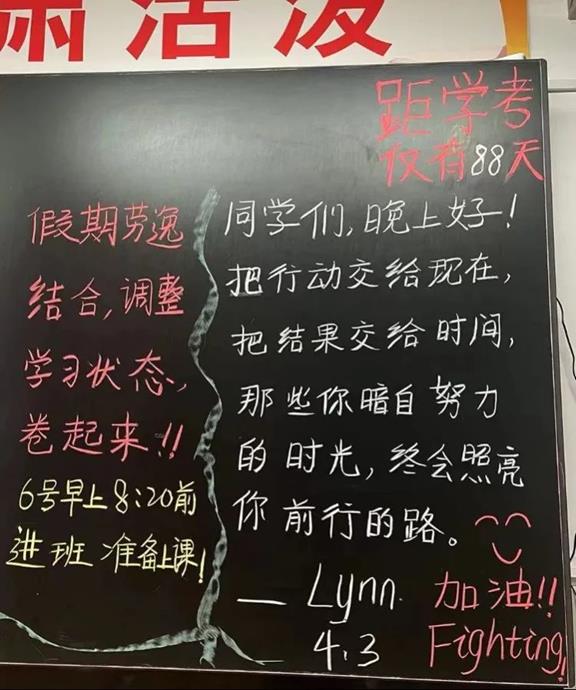 肃活泼
距学考
仅有88天
假期劳逸
结合,调整
学习状态,
卷起来!!
6号早上8:20前
进班 准备上课!
同学们,晚上好!
把行动交给现在,
把结果交给时间,
那些你暗自努力
的时光,终会照亮
你前行的路。
— Lynn.
4.3
加油!!
Fighting!